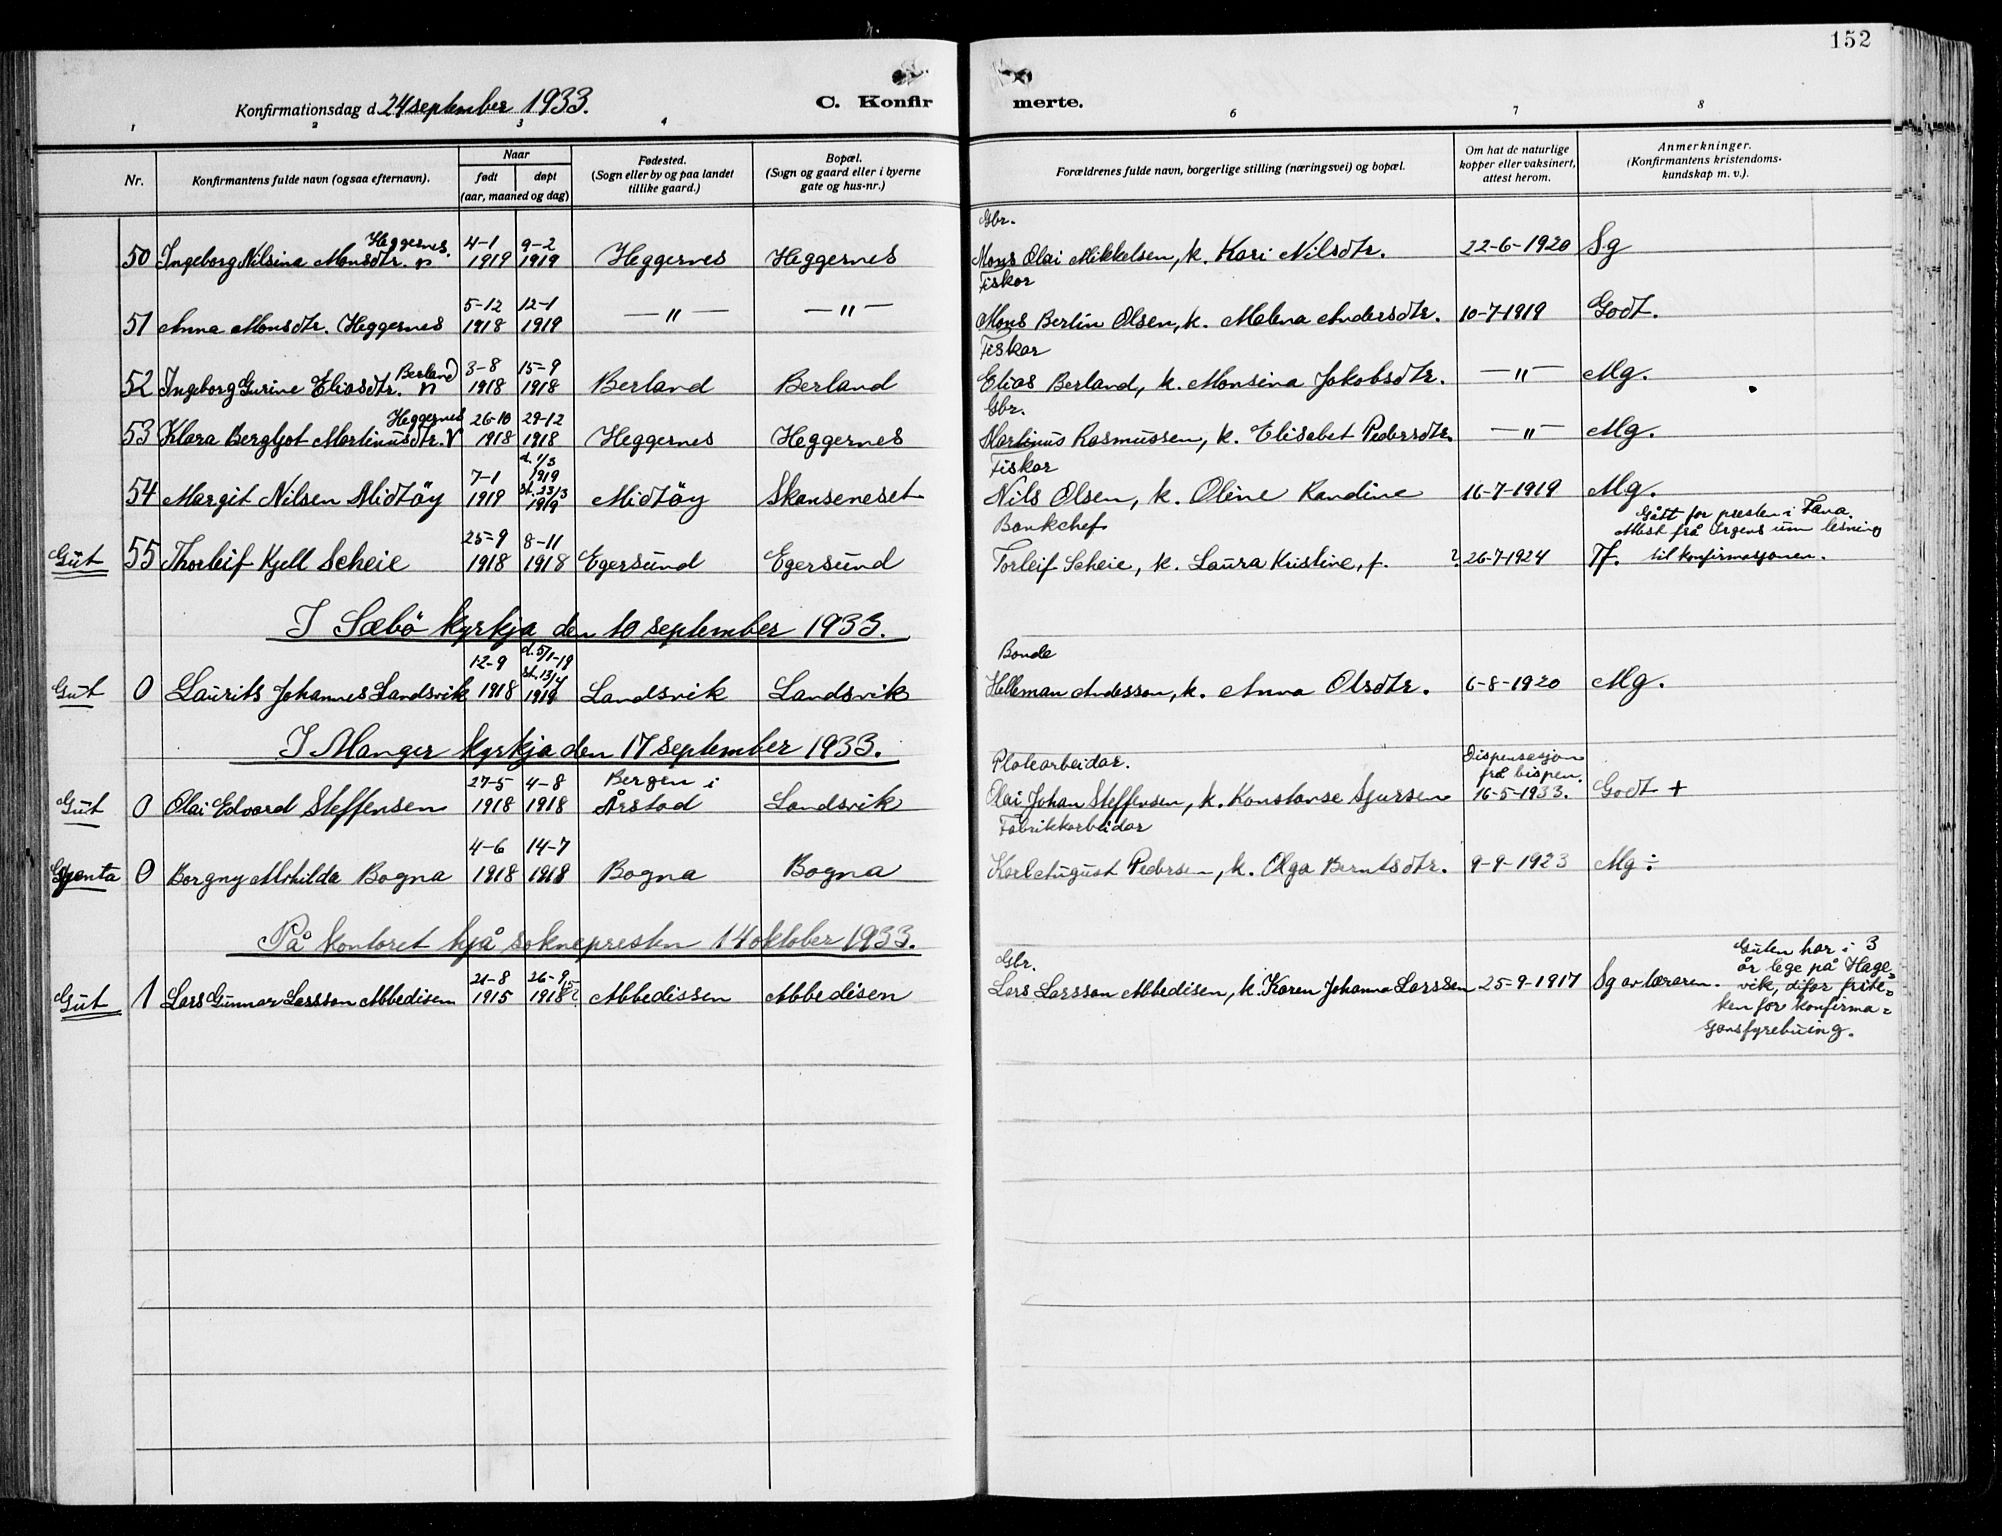 152
Konfirmationsdag d. 24 september 1933.
C. Konfirmerte.
1 2 3 4 6 7 8
Nr.
Konfirmantens fulde navn (ogsaa efternavn).
Naar
født
døpt
(aar, maaned og dag)
Fødested.
(Sogn eller by og paa landet
tillike gaard.)
Bopæl.
(Sogn og gaard eller i byerne
gate og hus-nr.)
Forældrenes fulde navn, borgerlige stilling (næringsvei) og bopæl.
Om hat de naturlige
kopper eller vaksinert,
attest herom.
Anmerkninger.
(Konfirmantens kristendoms-
kundskap m. v.).
Heggernes. 4-1 9-2 Gbr.
50 Ingeborg Nilsina Monsdtr. 1919 1919 Heggernes Heggernes Mons Olai Mikkelsen, k. Kari Nilsdtr. 22-6-1920 Sg
5-12 12-1 Fiskar
51 Anna Monsdtr. Heggernes 1918 1919 — " — — " — Mons Berlin Olsen, k. Malena Andersdtr. 10-7-1919 Godt.
Berland 3-8 15-9 Fiskar
52 Ingeborg Gurine Eliasdtr. 1918 1918 Berland Berland Elias Berland, k. Monsina Jakobsdtr. — " — Mg.
Heggernes 26-10 29-12 Gbr.
53 Klara Bergljot Martinusdtr. 1918 1918 Heggernes Heggernes Martinus Rasmussen, k. Elisabet Pedersdtr. — " — Mg.
7-1 d. 1/3 1919 Fiskar
54 Margit Nilsen Midtöy 1919 st. 23/3 1919 Midtöy Skanseneset Nils Olsen, k. Oline Randine 16-7-1919 Mg.
25-9 8-11 Bankchef Gått for presten i Fana.
Møst frå Örgens um lesning
Gut 55 Thorleif Kjell Scheie 1918 1918 Egersund Egersund Torleif Scheie, k. Laura Kristine, f. ? 26-7-1924 Tf. til konfirmasjonen.
I Sæbö kyrkja den 10 september 1933.
12-9 d. 5/1-19 st. 13/4 Bonde
Gut 0 Laurits Johannes Landsvik 1918 1919 Landsvik Landsvik Helleman Andersson, k. Anna Olsdtr. 6-8-1920 Mg.
I Manger kyrkja den 17 september 1933.
27-5 4-8 Bergen i Platearbeidar. Dispensasjon
frå bispen.
Gut 0 Olai Edvard Steffensen 1918 1918 Årstad Landsvik Olai Johan Steffensen, k. Konstanse Sjursen 16-5-1933. Godt +
4-6 14-7 Fabrikkarbeidar
Gjenta 0 Borgny Mathilda Bogna 1918 1918 Bogna Bogna Karl August Pedersen, k. Olga Berntsdtr. 9-9-1923 Mg ÷
På kontoret hjå soknepresten 14 oktober 1933.
21-8 26-9 Gbr. Guten har i 3
år lege på Hage-
Gut 1 Lars Gunnar Larsson Abbedisen 1915 1918 Abbedissen Abbedisen Lars Larsson Abbedisen, k. Karen Johanna Larssen 25-9-1917 Sg av læraren. vik, difor frite-
ken for konfirma-
sjonsfyrebuing.